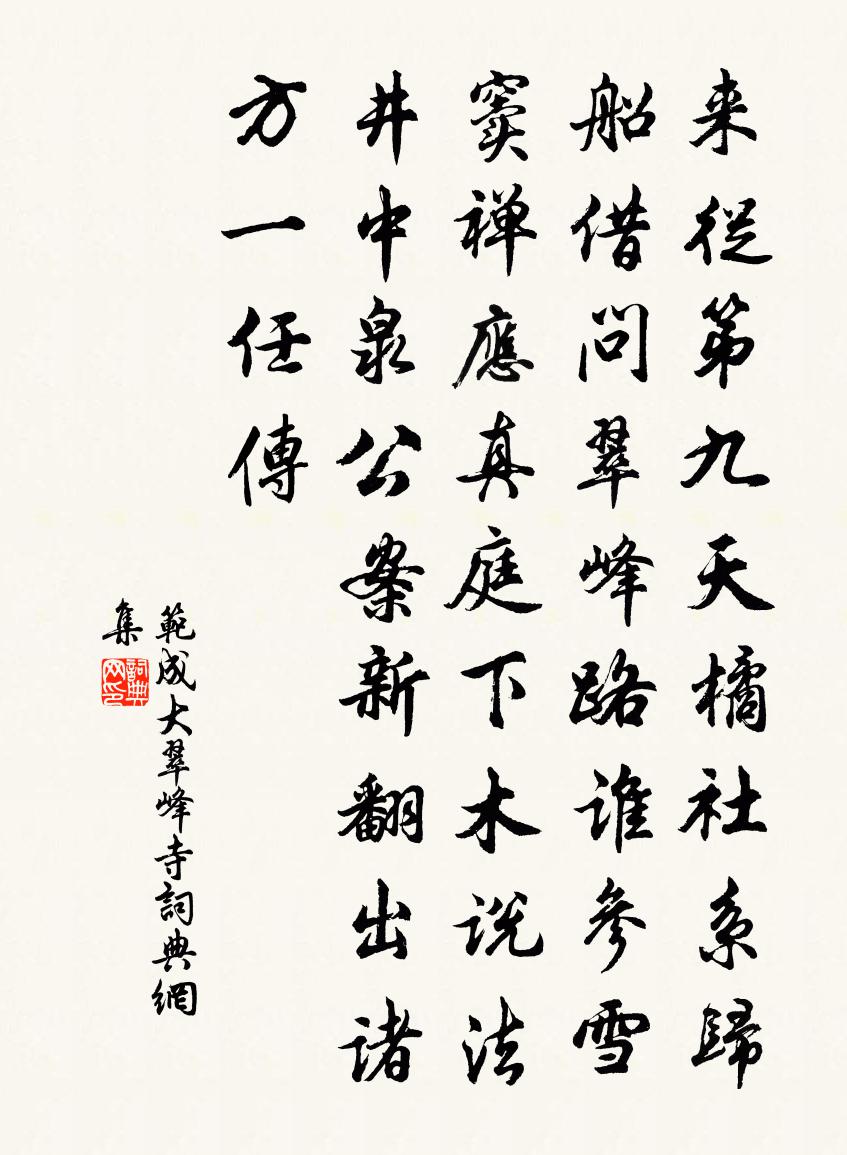 来從第九天橘社系歸
船借问翠峰路谁參雪
窦禅應真庭下木说法
井中泉公案新翻出诸
方一任傳
範成大翠峰寺詞典網
集
詞典网印